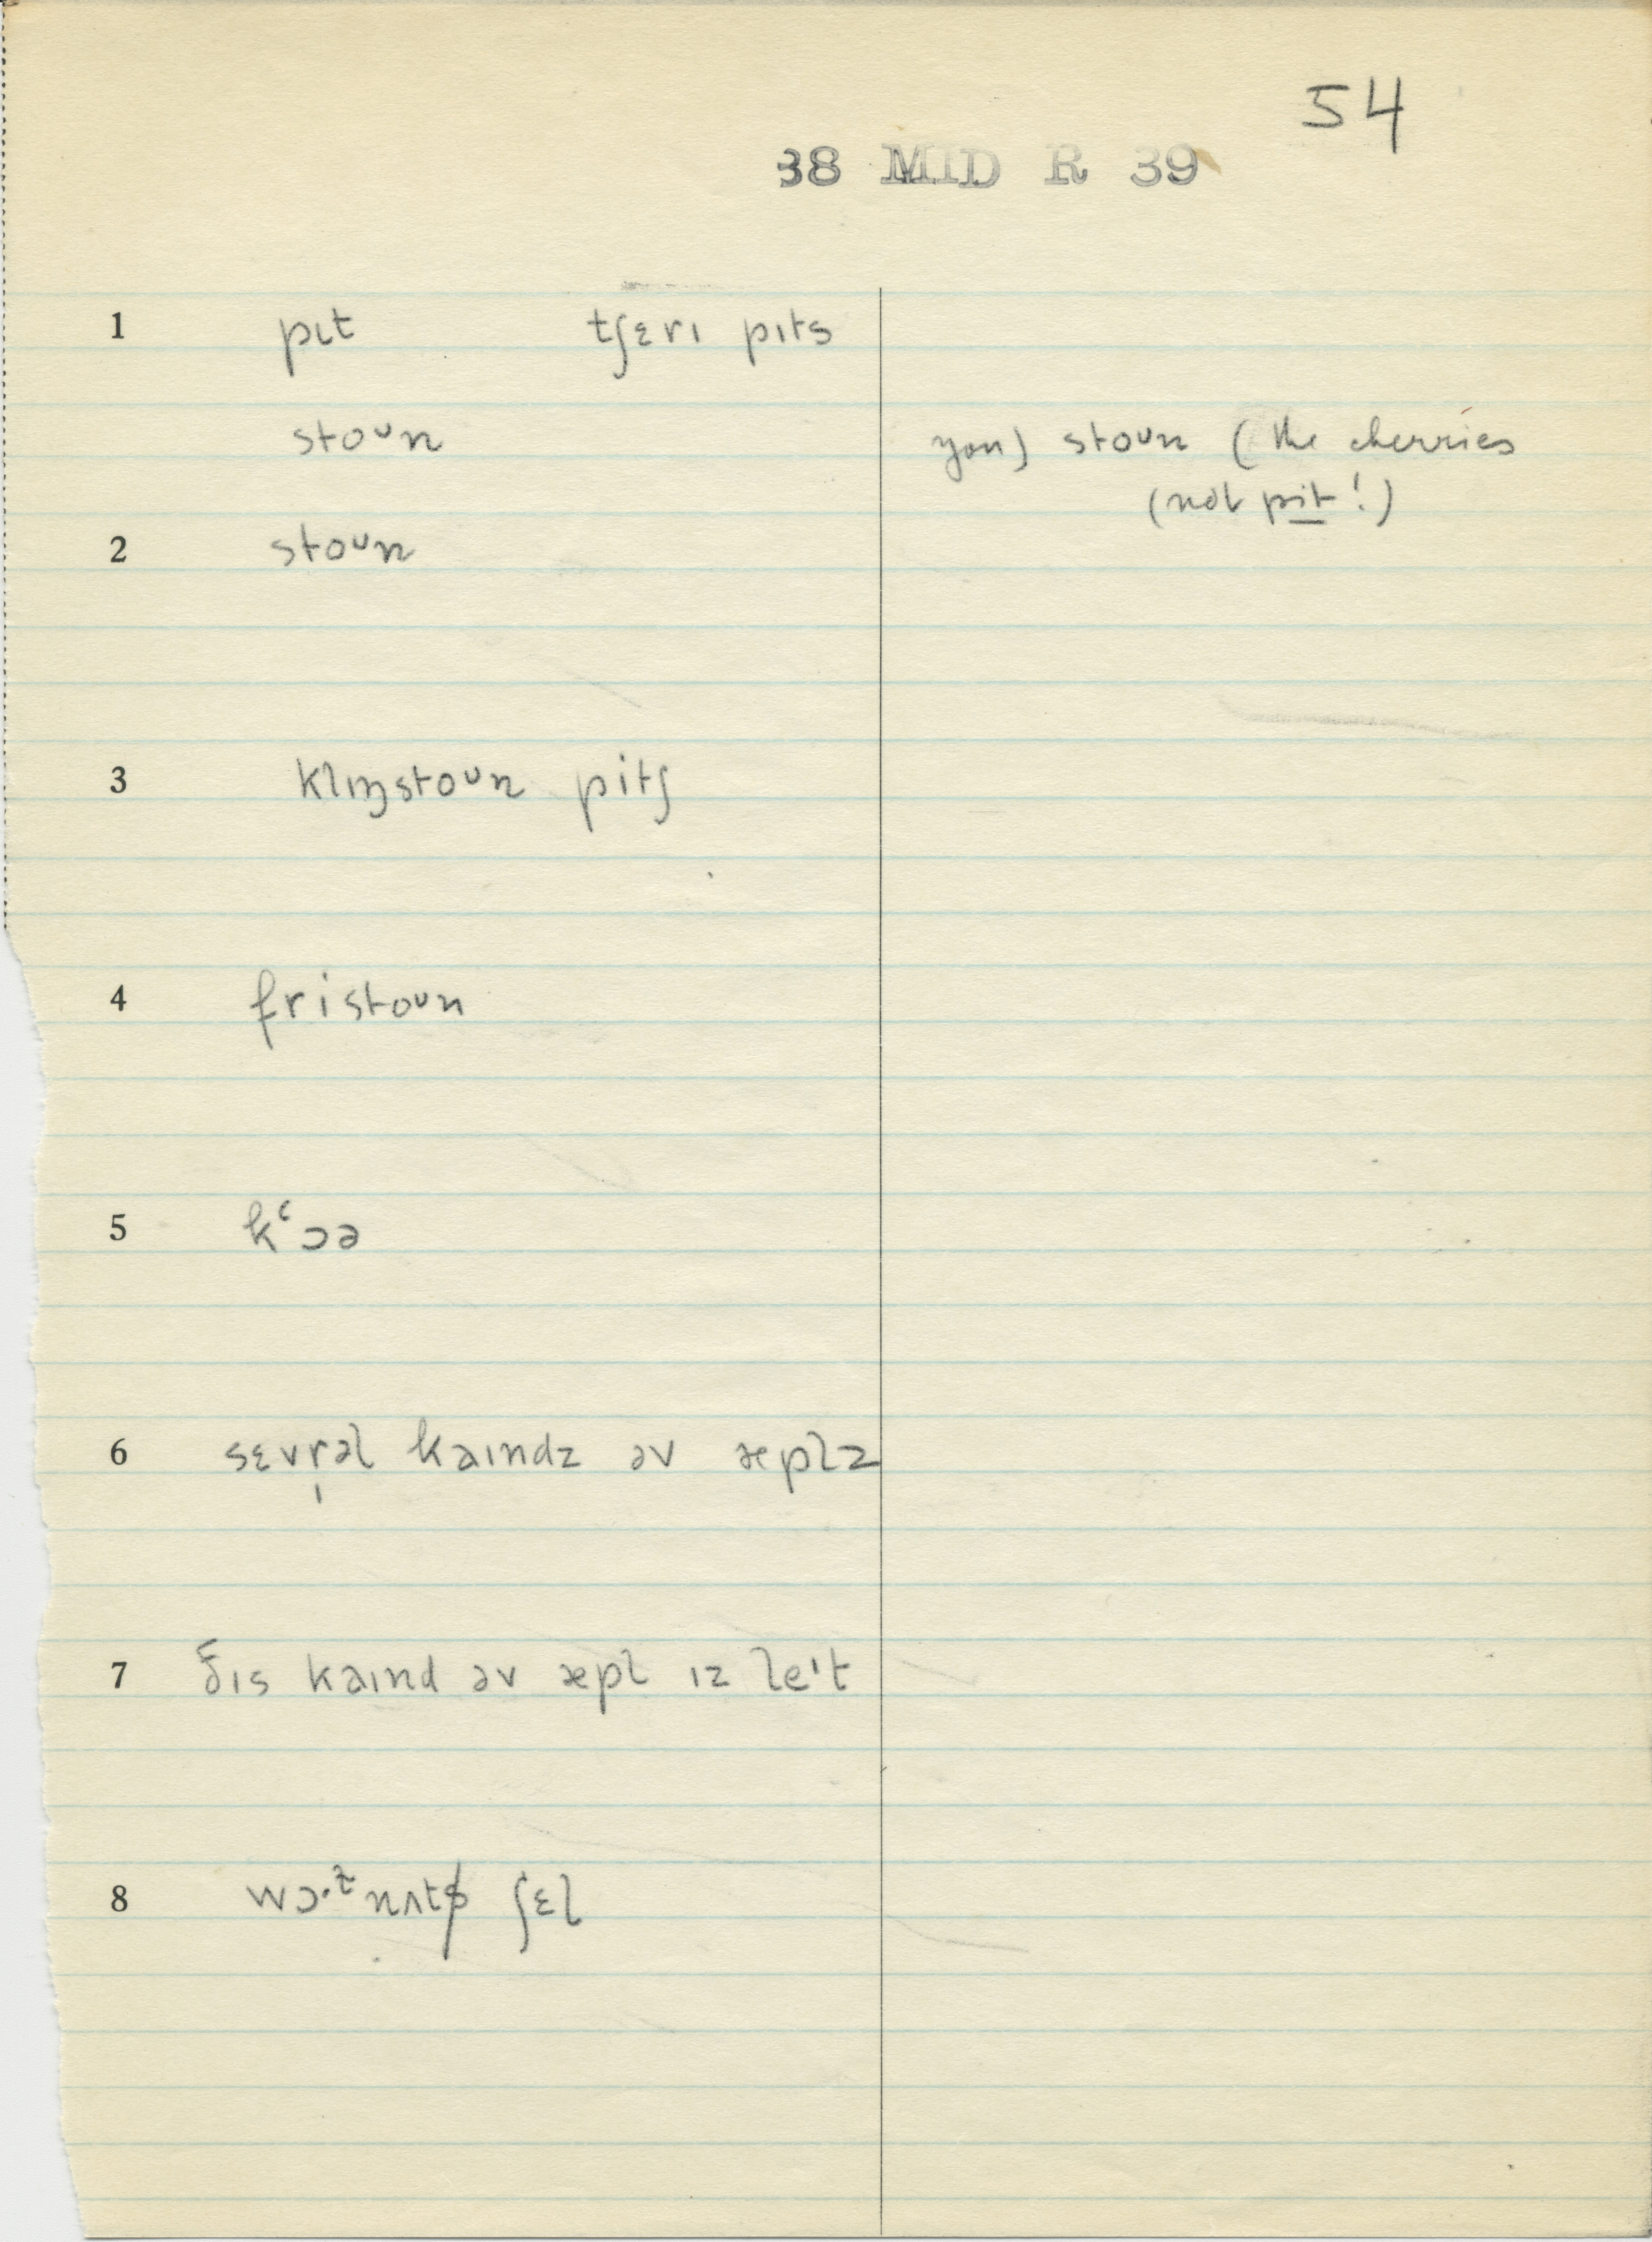 54
38 MID R 39
1 pɪt tʃɛrɪ pɪts
stoᴜn you) stoᴜn (the cherries
(not pit!)
2 stoᴜn
3 klɪŋstoᴜn pitʃ
4 fristoᴜn
5 kʻɔə
6 sɛvr̩əl kaɪndz əv æplz
7 ðɪs kaɪnd əv æpl ɪz leᶦt
8 wɔ·ᵗ̬nʌts ʃɛl